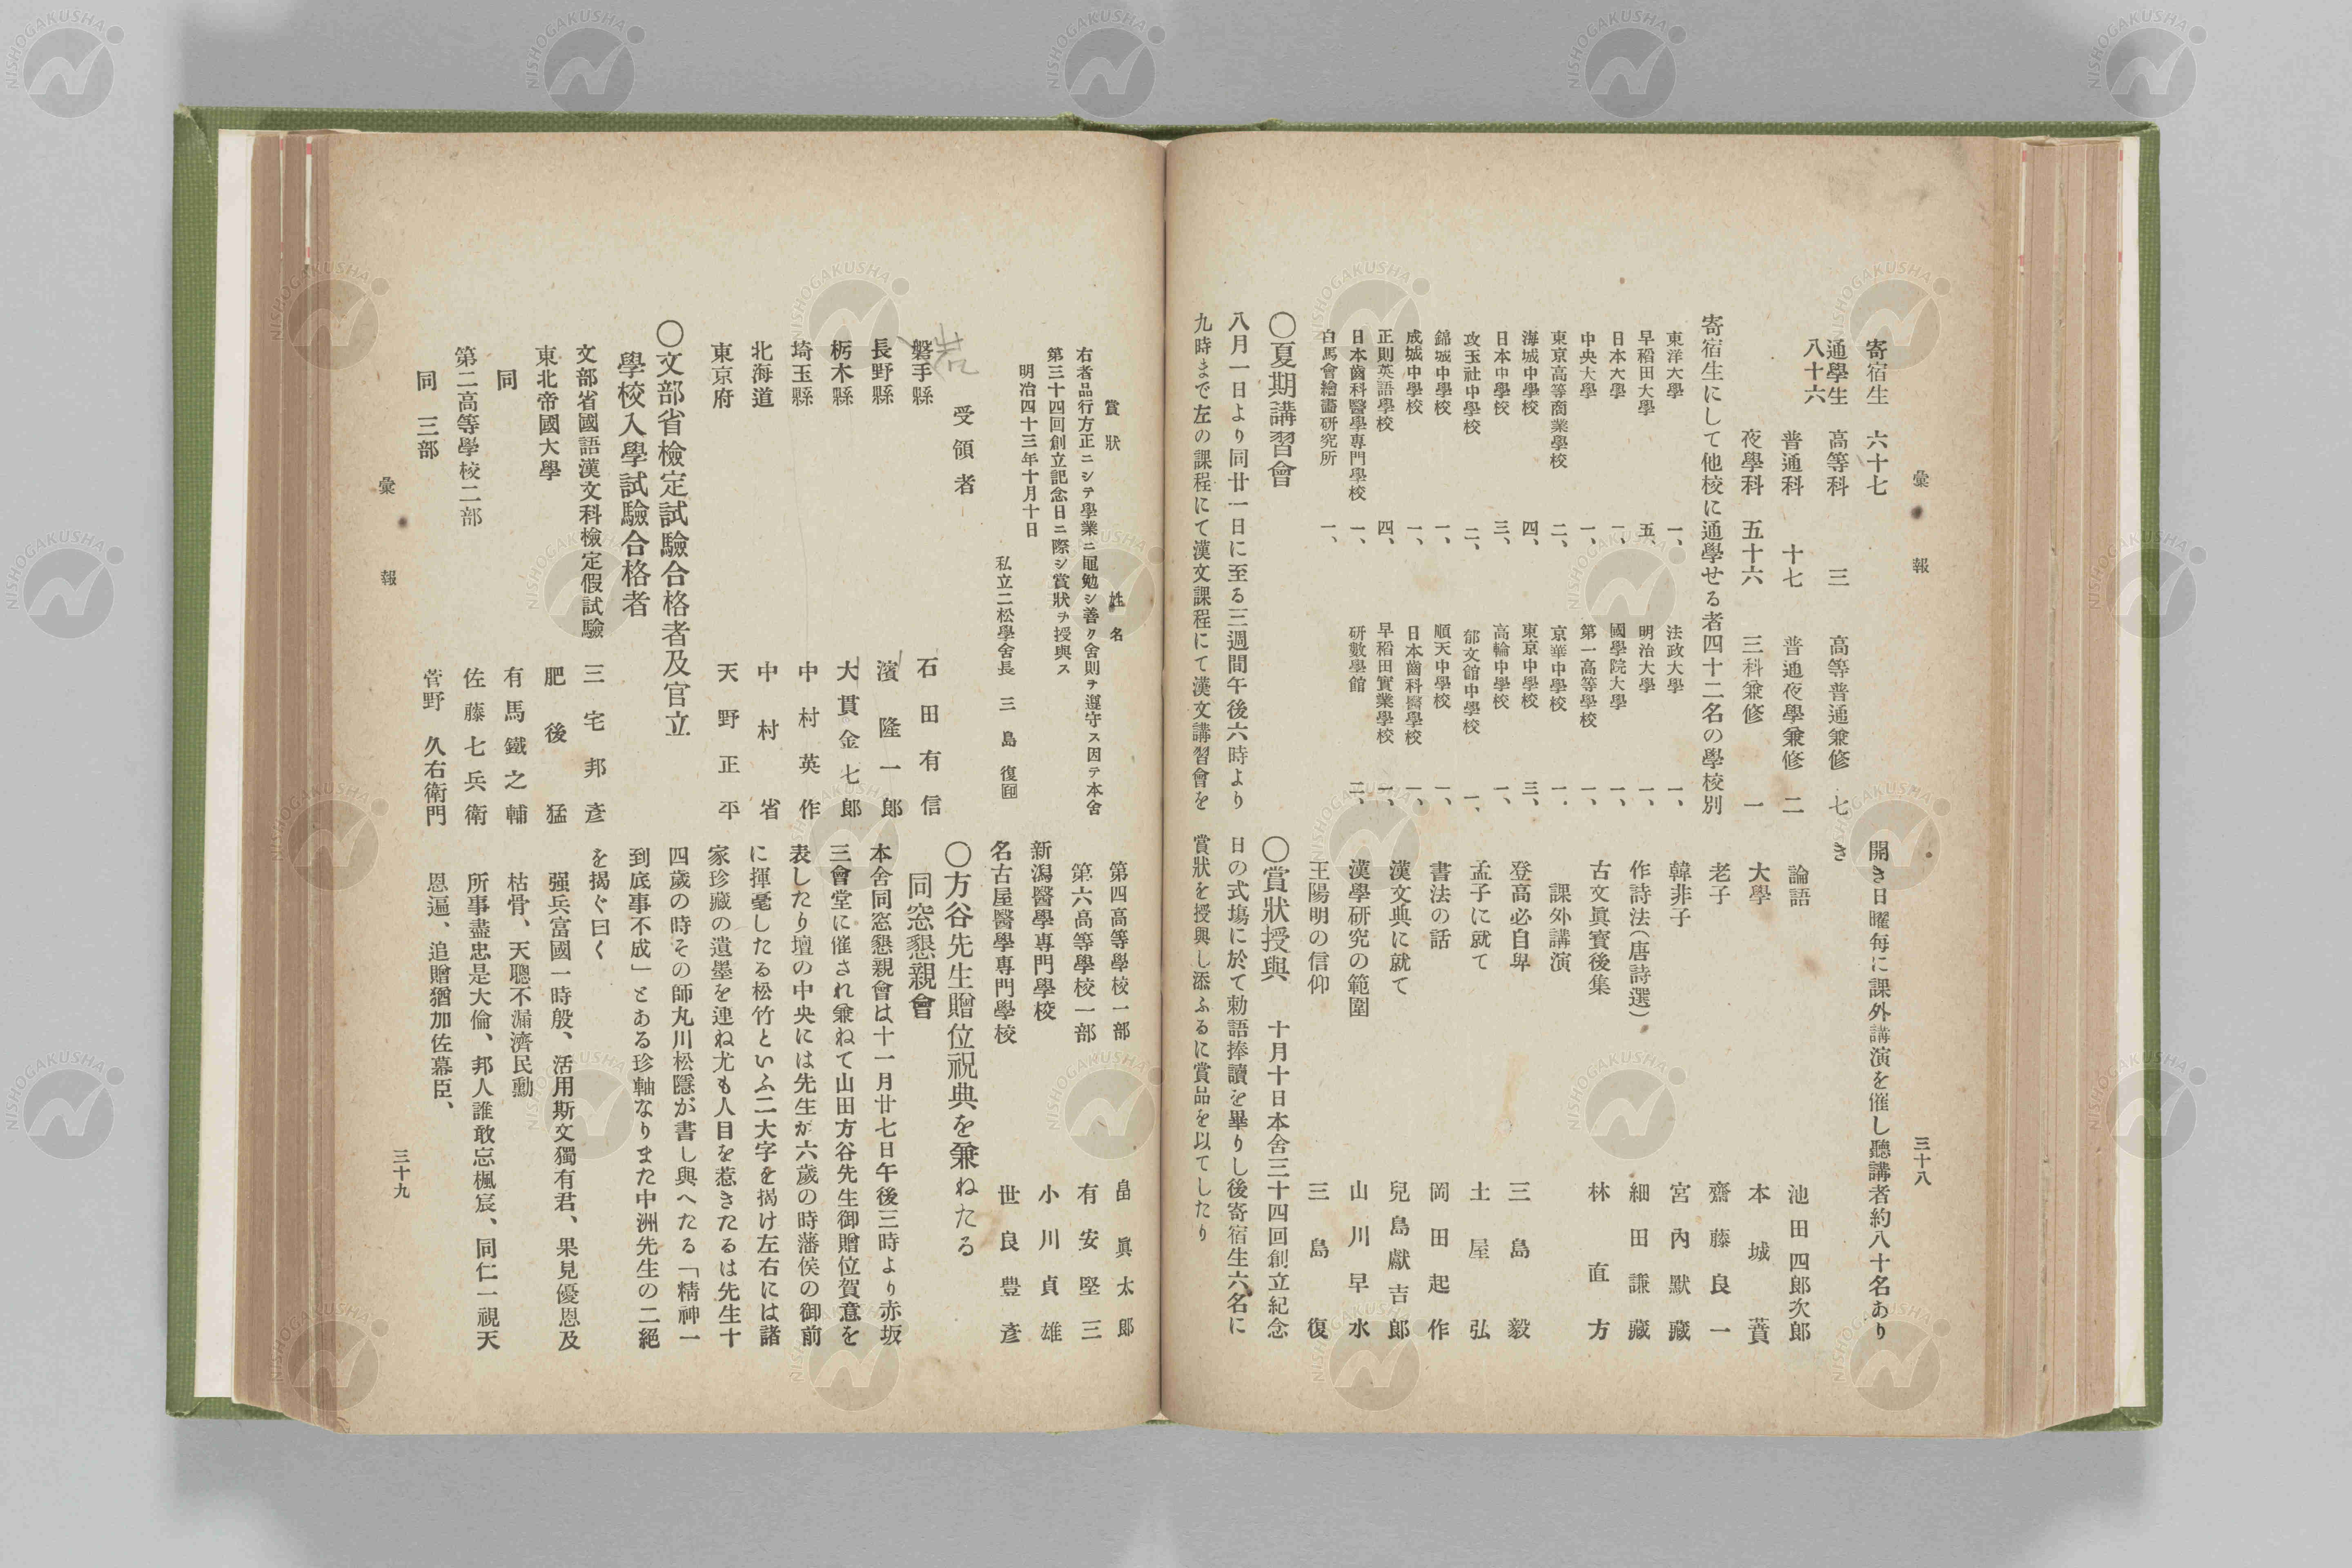 彙報
三十八
寄宿生　六十七
通學生　高等科　三　高等普通兼修　七
八十六
普通科　十七　普通夜學兼修　二
夜學科　五十六　三科兼修　一
寄宿生にして他校に通學せる者四十二名の學校別
東洋大學　一、　法政大學　一、
早稻田大學　五、　明治大學　一、
日本大學　一、　國學院大學　一、
中央大學　一、　第一高等學校　一、
東京高等商業學校　二、　京華中學校　一、
海城中學校　四、　東京中學校　三、
日本中學校　三、　高輪中學校　一、
攻玉社中學校　二、　郁文館中學校　一、
錦城中學校　一、　順天中學校　一、
成城中學校　一、　日本齒科醫學校　一、
正則英語學校　四、　早稻田實業學校　一、
日本齒科醫學專門學校　一、　研數學館　二、
白馬會繪畵研究所　一、
〇夏期講習會
八月一日より同廿一日に至る三週間午後六時より
九時まで左の課程にて漢文課程にて漢文講習會を
開き日曜每に課外講演を催し聽講者約八十名あり
き
論語　池田四郎次郎
大學　本城蕡
老子　齋藤良一
韓非子　宮內默藏
作詩法(唐詩選)　細田謙藏
古文眞寳後集　林直方
課外講演
登高必自卑　三島毅
孟子に就て　土屋弘
書法の話　岡田起作
漢文典に就て　兒島獻吉郎
漢學研究の範圍　山川早水
王陽明の信仰　三島復
〇賞狀授與　十月十日本舍三十四回創立紀念
日の式塲に於て勅語捧讀を畢りし後寄宿生六名に
賞狀を授與し添ふるに賞品を以てしたり
賞狀
姓名
右者品行方正ニシテ學業ニ黽勉シ善ク舍則ヲ遵守ス因テ本舍
第三十四回創立記念日ニ際シ賞狀ヲ授與ス
明治四十三年十月十日
私立二松學舍長　三島復㊞
受領者
岩
磐手縣　石田有信
長野縣　濱隆一郎
栃木縣　大貫金七郎
埼玉縣　中村英作
北海道　中村省
東京府　天野正平
〇文部省檢定試驗合格者及官立
學校入學試驗合格者
文部省國語漢文科檢定假試驗　三宅邦彥
東北帝國大學　肥後猛
同　有馬鐵之輔
第二高等學校二部　佐藤七兵衛
同　三部　菅野久右衛門
第四高等學校一部　畠眞太郎
第六高等學校一部　有安堅三
新潟醫學專門學校　小川貞雄
名古屋醫學專門學校　世良豊彥
〇方谷先生贈位祝典を兼ねたる
同窓懇親會
本舍同窓懇親會は十一月廿七日午後三時より赤坂
三會堂に催され兼ねて山田方谷先生御贈位賀意を
表したり壇の中央には先生が六歲の時藩侯の御前
に揮毫したる松竹といふ二大字を揭け左右には諸
家珍藏の遺墨を連ね尤も人目を惹きたるは先生十
四歲の時その師丸川松隱が書し與へたる「精神一
到底事不成」とある珍軸なりまた中洲先生の二絕
を揭ぐ曰く
强兵富國一時殷、活用斯文獨有君、果見優恩及
枯骨、天聰不漏濟民勳
所事盡忠是大倫、邦人誰敢忘楓宸、同仁一視天
恩遍、追贈猶加佐幕臣、
彙報
三十九
NISHOGAKUSHA